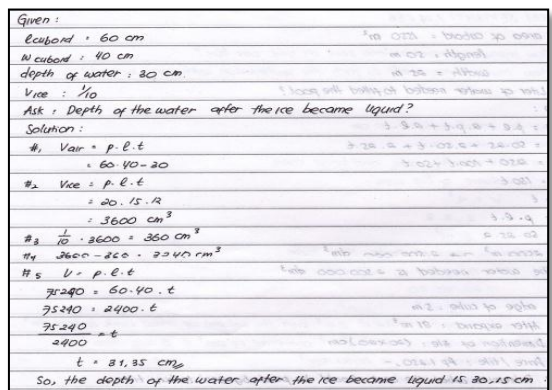 Given :
l cuboid : 60 cm
w cuboid : 40 cm
depth of water : 30 cm
V ice : 1/10
Ask : Depth of the water after the ice became liquid?
Solution :
#1 Vair = p. l. t
= 60. 40 - 30
#2 Vice = p. l. t
= 20. 15. 12
= 3600 cm³
#3 1/10 . 3600 = 360 cm³
#4 3600 - 360 = 3240 cm³
#5 V = p. l. t
75240 = 60.40. t
75240 = 2400. t
75240/2400 = t
t = 31,35 cm
So, the depth of the water after the ice became liquid 15 30,15 cm